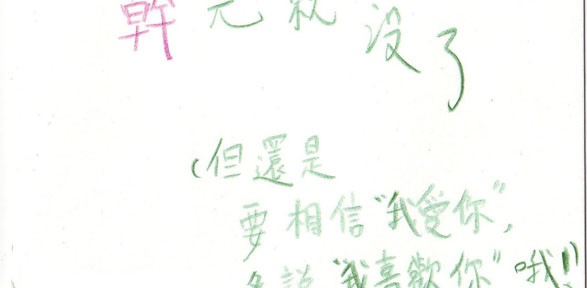 就没了
(但還是
要相信"我愛你",
多說"我喜歡你"哦!!